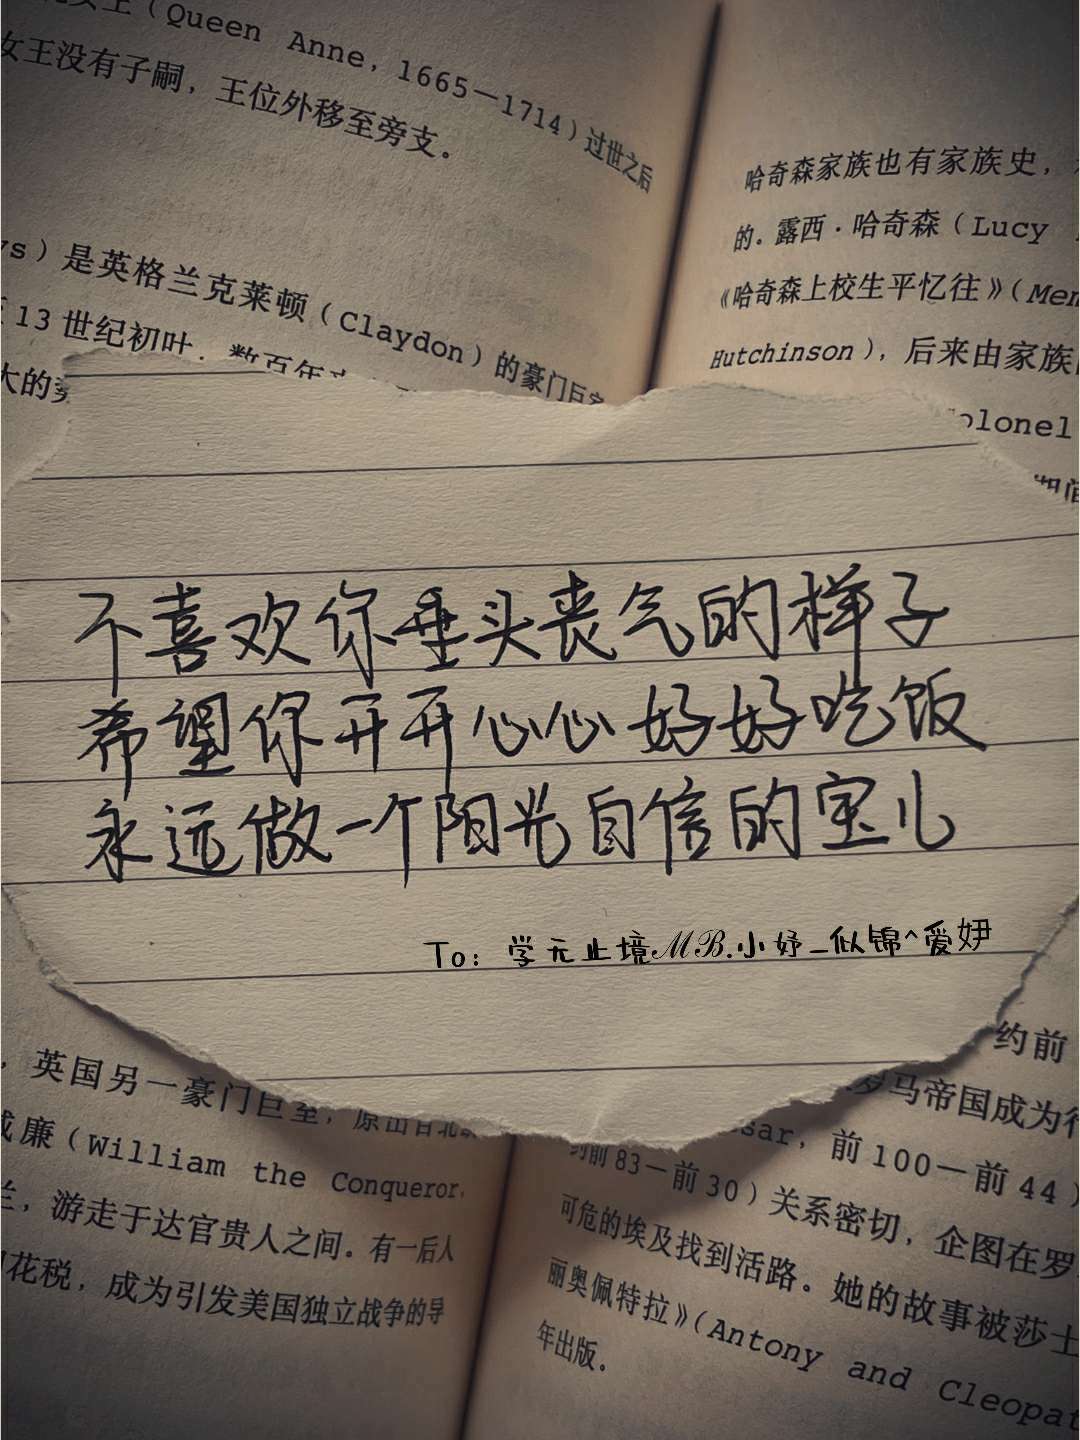 女王（Queen Anne，1665—1714）过世之后
女王没有子嗣，王位外移至旁支。
ys）是英格兰克莱顿（Claydon）的豪门巨室
13世纪初叶，数百年
大的
哈奇森家族也有家族史，
的。露西·哈奇森（Lucy
《哈奇森上校生平忆往》（Mem
Hutchinson），后来由家族
olonel
期间
不喜欢你垂头丧气的样子
希望你开开心心好好吃饭
永远做一个阳光自信的宝儿
To：学无止境ℳℬ.小妤_似锦^爱妤
，英国另一豪门巨室，原出自北
威廉（William the Conqueror，
兰，游走于达官贵人之间。有一后人
花税，成为引发美国独立战争的导
约前
罗马帝国成为行
sar，前100—前44）
约前83—前30）关系密切，企图在罗
可危的埃及找到活路。她的故事被莎士
丽奥佩特拉》（Antony and Cleopat
年出版。